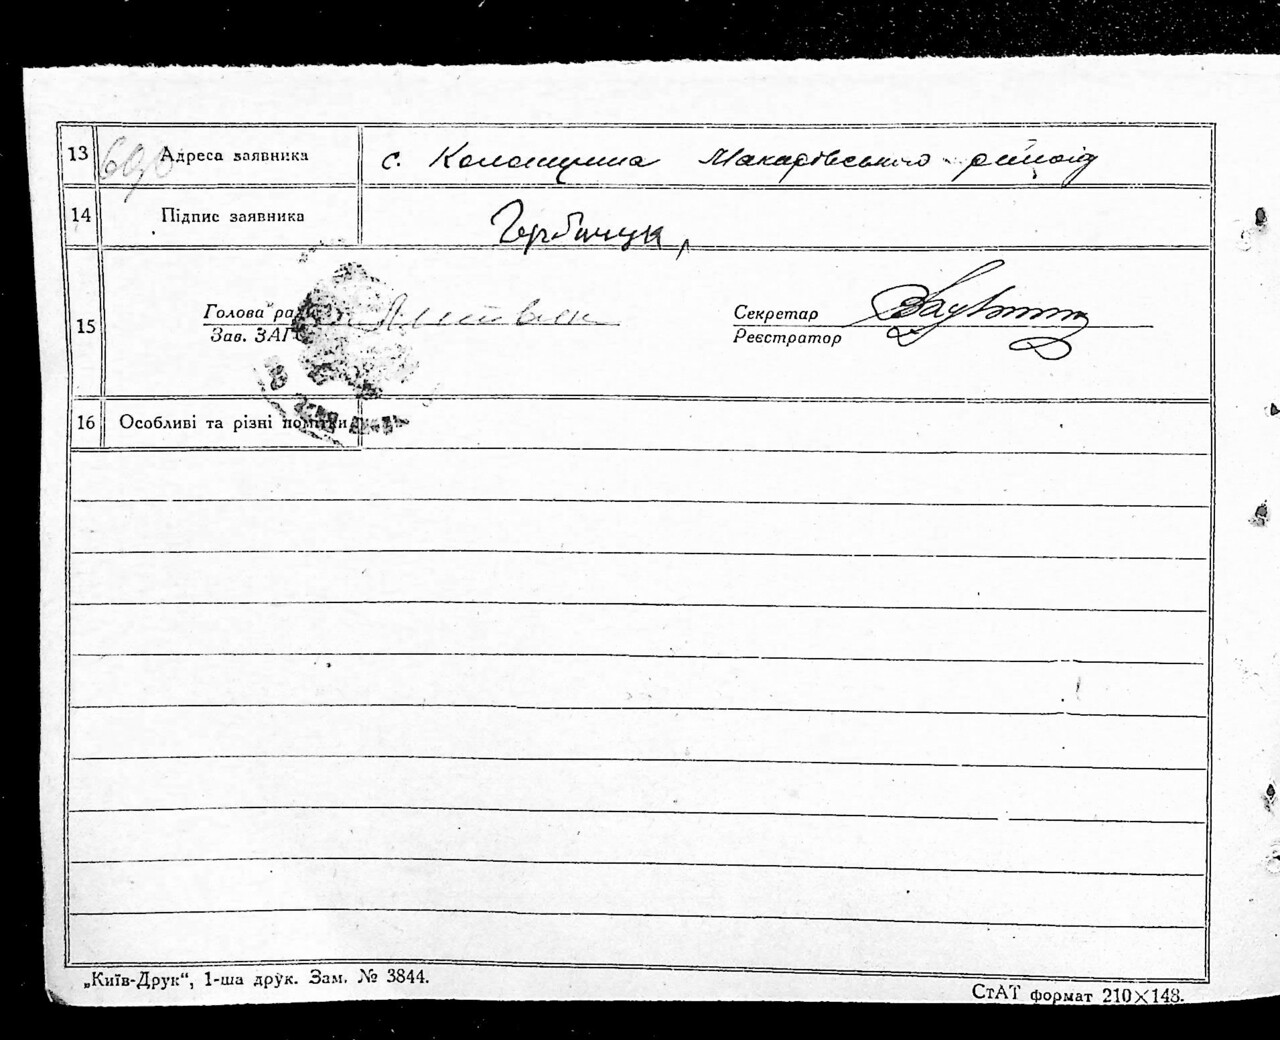 13 Адреса заявника с. Колонщина Макарівського району
14 Підпис заявника Горбачук
Голова ра Литвин Секретар
15
Зав. ЗАГ Реєстратор
16 Особливі та різні помітки
„Київ-Друк“, 1-ша друк. Зам. № 3844.
СтАТ формат 210×148.